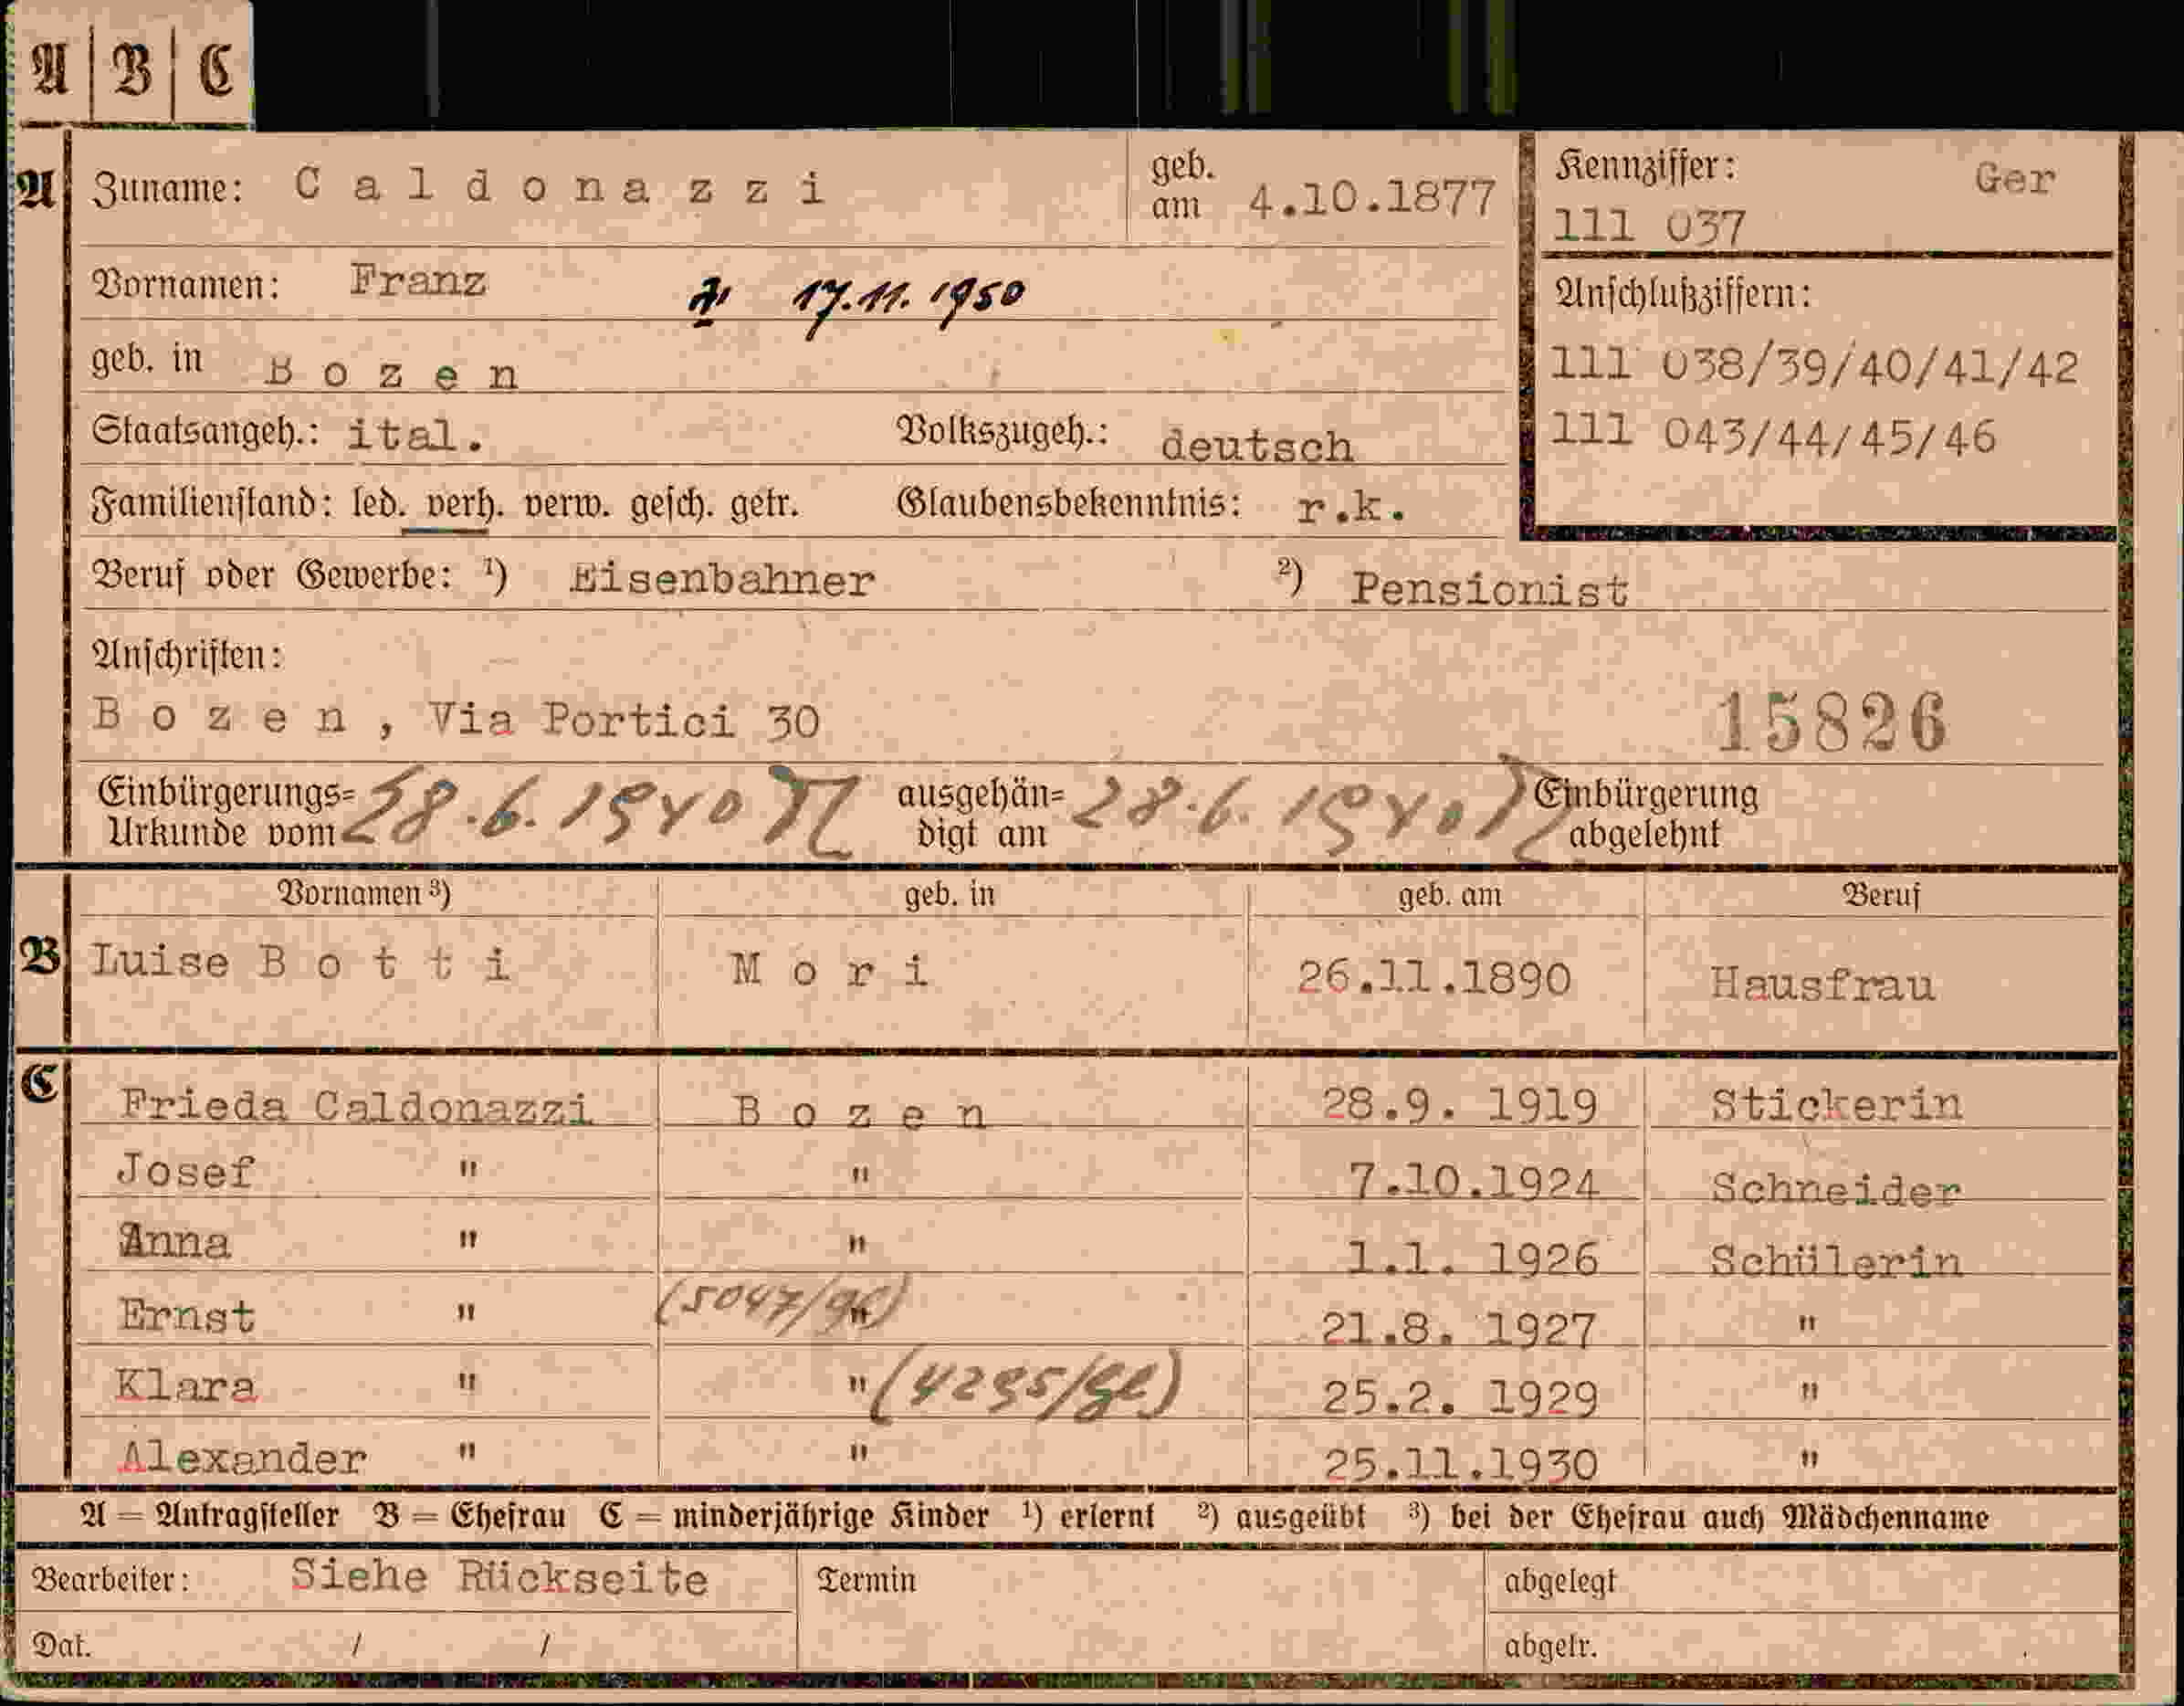 A | B | C
A Zuname: Caldonazzi geb. am 4.10.1877
Kennziffer: Ger
111 037
Vornamen: Franz 17.11.1950
Anschlußziffern:
111 038/39/40/41/42
111 043/44/45/46
geb. in Bozen
Staatsangeh.: ital. Volkszugeh.: deutsch
Familienstand: led. verh. verw. gesch. getr. Glaubensbekenntnis: r.k.
Beruf oder Gewerbe: ¹) Eisenbahner ²) Pensionist
Anschriften:
Bozen, Via Portici 30 15826
Einbürgerungs=
Urkunde vom 28.6.1940
ausgehän=
digt am 28.6.1940
Einbürgerung
abgelehnt
Vornamen ³) geb. in geb. am Beruf
B Luise Botti Mori 26.11.1890 Hausfrau
C Frieda Caldonazzi Bozen 28.9. 1919 Stickerin
Josef " " 7.10.1924 Schneider
Anna " " 1.1. 1926 Schülerin
Ernst " (5047/ge) " 21.8. 1927 "
Klara " " (4295/ge) 25.2. 1929 "
Alexander " " 25.11.1930 "
A = Antragsteller B = Ehefrau C = minderjährige Kinder ¹) erlernt ²) ausgeübt ³) bei der Ehefrau auch Mädchenname
Bearbeiter: Siehe Rückseite Termin abgelegt
Dat. / / abgetr.